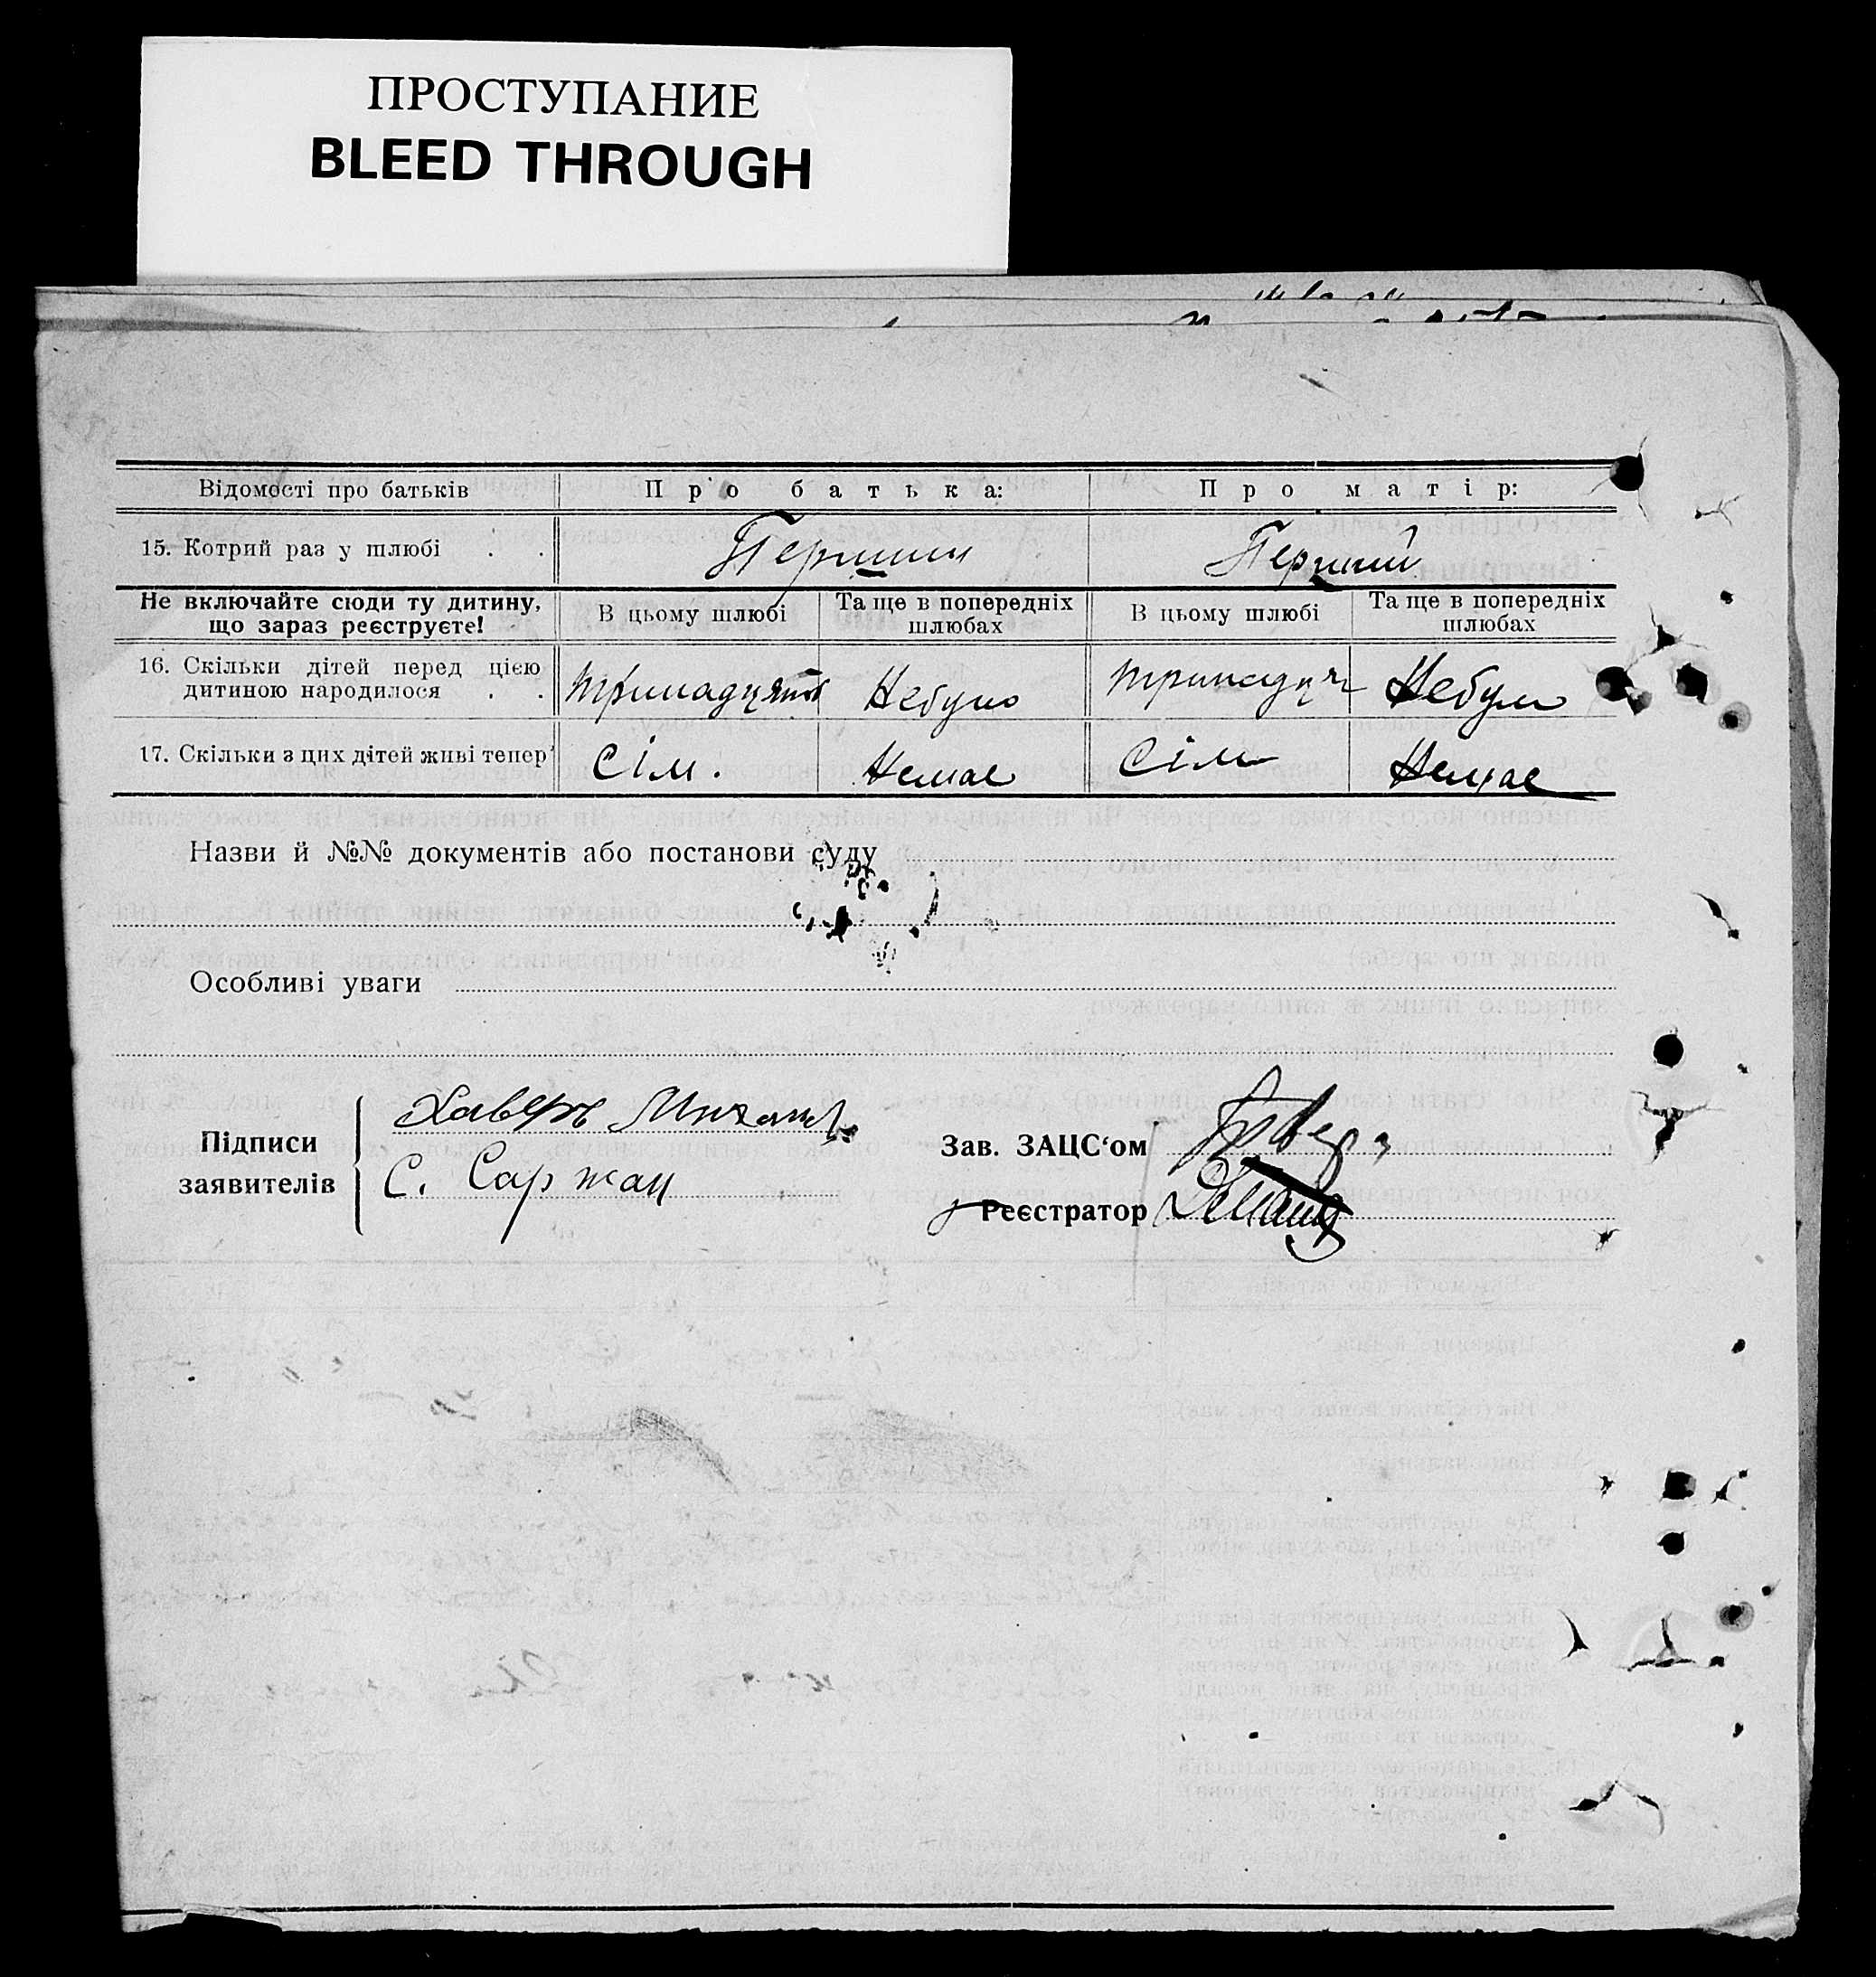 ПРОСТУПАНИЕ
BLEED THROUGH
Відомості про батьків Про батька: Про матір:
15. Котрий раз у шлюбі . . Перший Перший
Не включайте сюди ту дитину, що зараз реєструєте! В цьому шлюбі Та ще в попередніх шлюбах В цьому шлюбі Та ще в попередніх шлюбах
16. Скільки дітей перед цією
дитиною народилося . . тринадцять Небуло тринадцать Небуло
17. Скільки з цих дітей живі тепер Сім. Немає Сім Немає
Назви й №№ документів або постанови суду
Особливі уваги
Підписи заявителів
С. Саржан
Зав. ЗАЦС'ом
Реєстратор